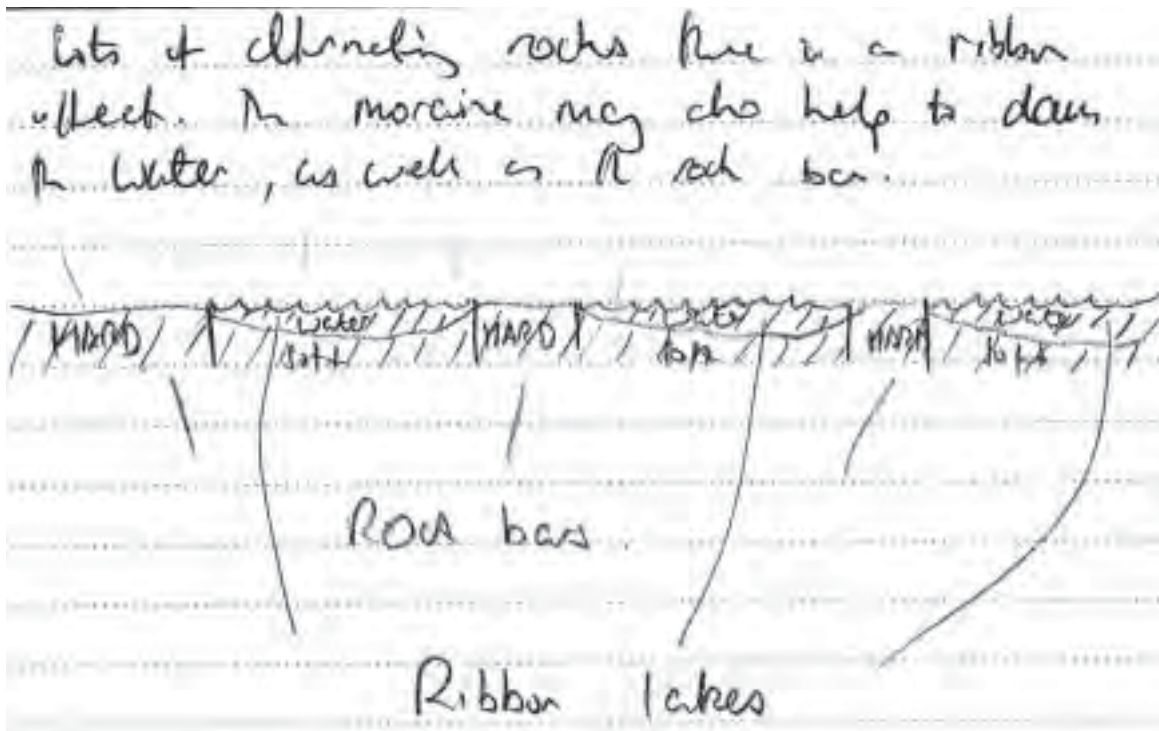 lots of alternating rocks there is a ribbon
effect. The moraine may also help to dam
the water, as well as the rock bar.
HARD water HARD water HARD water
soft soft soft
Rock bars.
Ribbon lakes